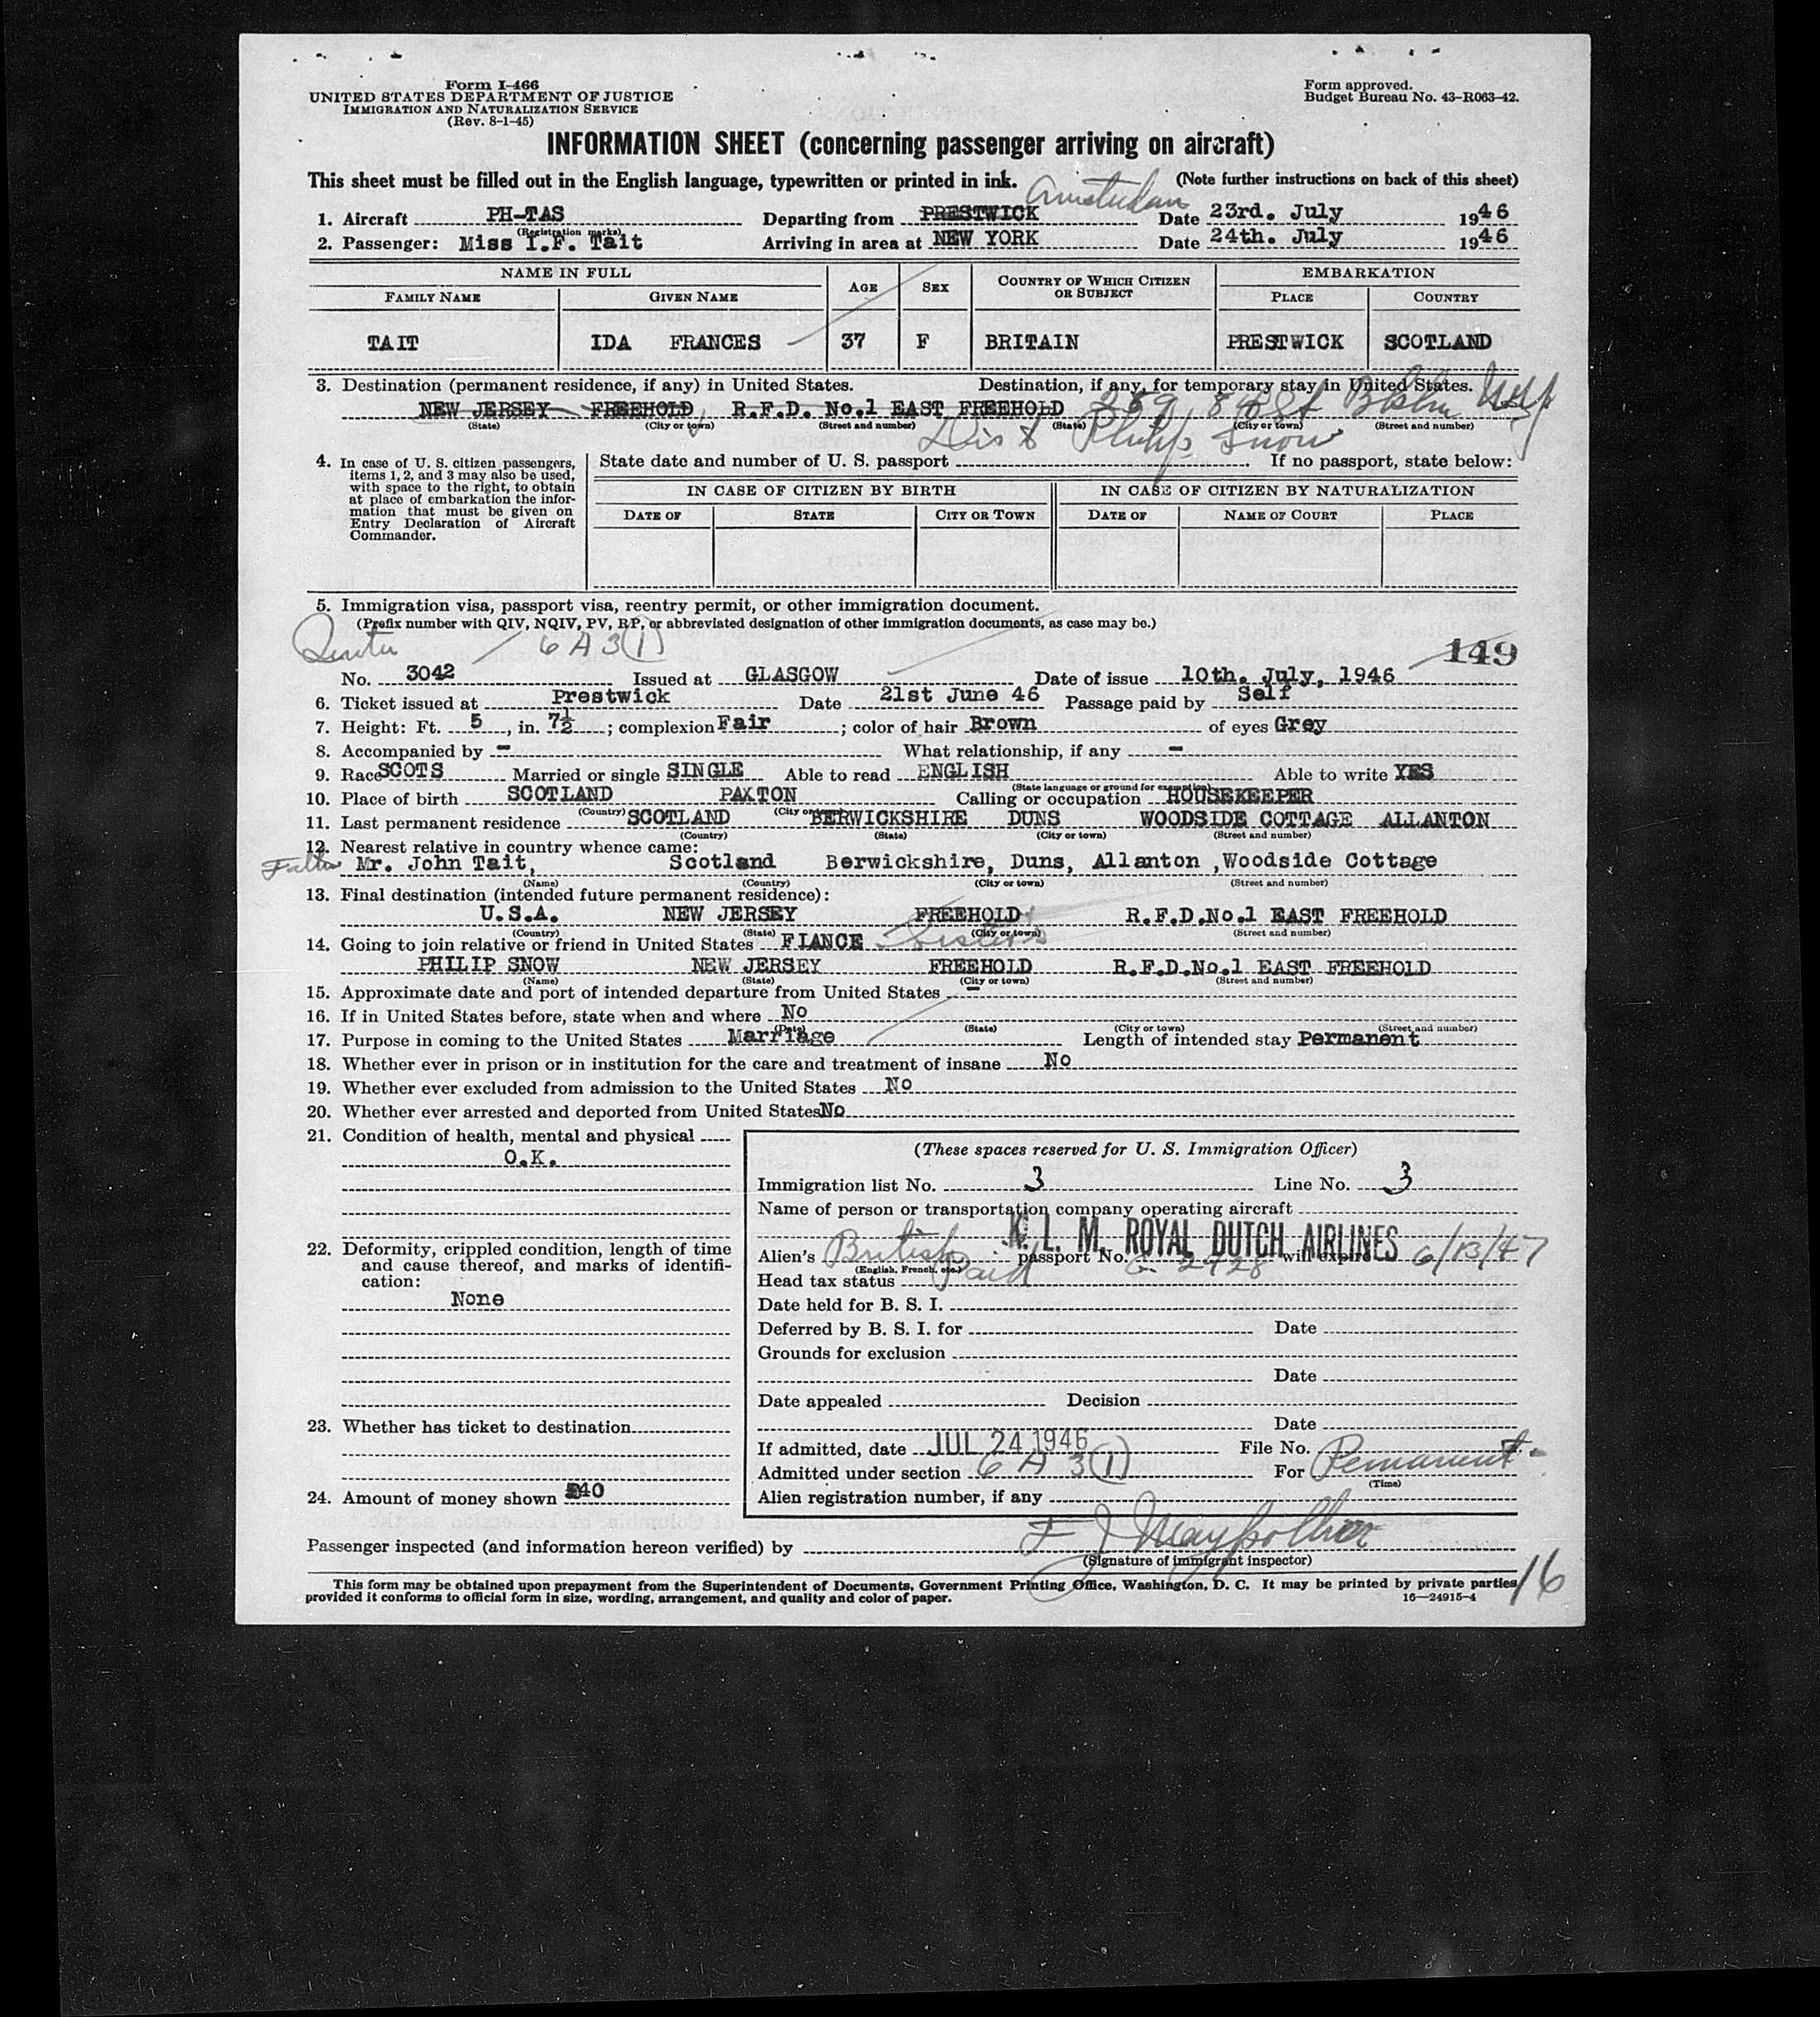 Form I-466
UNITED STATES DEPARTMENT OF JUSTICE
IMMIGRATION AND NATURALIZATION SERVICE
(Rev. 8-1-45)
Form approved.
Budget Bureau No. 43-R063-42.
INFORMATION SHEET (concerning passenger arriving on aircraft)
This sheet must be filled out in the English language, typewritten or printed in ink. (Note further instructions on back of this sheet)
Amsterdam
1. Aircraft PH-TAS Departing from PRESTWICK Date 23rd. July 1946
(Registration marks)
2. Passenger: Miss I.F. Tait Arriving in area at NEW YORK Date 24th. July 1946
NAME IN FULL AGE SEX COUNTRY OF WHICH CITIZEN OR SUBJECT EMBARKATION
FAMILY NAME GIVEN NAME PLACE COUNTRY
TAIT IDA FRANCES 37 F BRITAIN PRESTWICK SCOTLAND
3. Destination (permanent residence, if any) in United States. Destination, if any, for temporary stay in United States.
NEW JERSEY FREEHOLD, R.F.D. No.1 EAST FREEHOLD
(State) (City or town) (Street and number) (State) (City or town) (Street and number)
Philip Snow
4. In case of U. S. citizen passengers, items 1, 2, and 3 may also be used, with space to the right, to obtain at place of embarkation the information that must be given on Entry Declaration of Aircraft Commander.
State date and number of U. S. passport If no passport, state below:
IN CASE OF CITIZEN BY BIRTH IN CASE OF CITIZEN BY NATURALIZATION
DATE OF STATE CITY OR TOWN DATE OF NAME OF COURT PLACE
5. Immigration visa, passport visa, reentry permit, or other immigration document.
(Prefix number with QIV, NQIV, PV, RP, or abbreviated designation of other immigration documents, as case may be.)
6 A 3 (1)
149
No. 3042 Issued at GLASGOW Date of issue 10th. July, 1946
6. Ticket issued at Prestwick Date 21st June 46 Passage paid by Self
7. Height: Ft. 5, in. 7½; complexion Fair; color of hair Brown of eyes Grey
8. Accompanied by - What relationship, if any -
9. Race SCOTS Married or single SINGLE Able to read ENGLISH Able to write YES
(State language or ground for exemption)
10. Place of birth SCOTLAND PAXTON Calling or occupation HOUSEKEEPER
(Country) (City or town)
11. Last permanent residence SCOTLAND BERWICKSHIRE DUNS WOODSIDE COTTAGE ALLANTON
(Country) (State) (City or town) (Street and number)
12. Nearest relative in country whence came:
Father Mr. John Tait, Scotland Berwickshire, Duns, Allanton ,Woodside Cottage
(Name) (Country) (City or town) (Street and number)
13. Final destination (intended future permanent residence):
U.S.A. NEW JERSEY FREEHOLD R.F.D.No.1 EAST FREEHOLD
(Country) (State) (City or town) (Street and number)
14. Going to join relative or friend in United States FIANCE
PHILIP SNOW NEW JERSEY FREEHOLD R.F.D.No.1 EAST FREEHOLD
(Name) (State) (City or town) (Street and number)
15. Approximate date and port of intended departure from United States -
16. If in United States before, state when and where No
(Date) (State) (City or town) (Street and number)
17. Purpose in coming to the United States Marriage Length of intended stay Permanent
18. Whether ever in prison or in institution for the care and treatment of insane No
19. Whether ever excluded from admission to the United States No
20. Whether ever arrested and deported from United States No
21. Condition of health, mental and physical
O.K.
22. Deformity, crippled condition, length of time and cause thereof, and marks of identification:
None
23. Whether has ticket to destination
24. Amount of money shown £40
(These spaces reserved for U. S. Immigration Officer)
Immigration list No. 3 Line No. 3
Name of person or transportation company operating aircraft
K. L. M. ROYAL DUTCH AIRLINES
Alien's British passport No. will expire 6/13/47
(English, French, etc.)
Head tax status Paid
Date held for B. S. I.
Deferred by B. S. I. for Date
Grounds for exclusion
Date
Date appealed Decision
Date
If admitted, date JUL 24 1946 File No.
Admitted under section 6 A 3 (1) For Permanent
(Time)
Alien registration number, if any
Passenger inspected (and information hereon verified) by
(Signature of immigrant inspector)
This form may be obtained upon prepayment from the Superintendent of Documents, Government Printing Office, Washington, D. C. It may be printed by private parties
provided it conforms to official form in size, wording, arrangement, and quality and color of paper.
16—24915-4
16